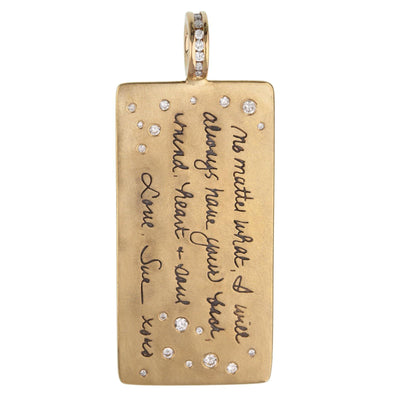 no matter what, I will
always have your back,
mind, heart + soul
Love, Sue xoxo